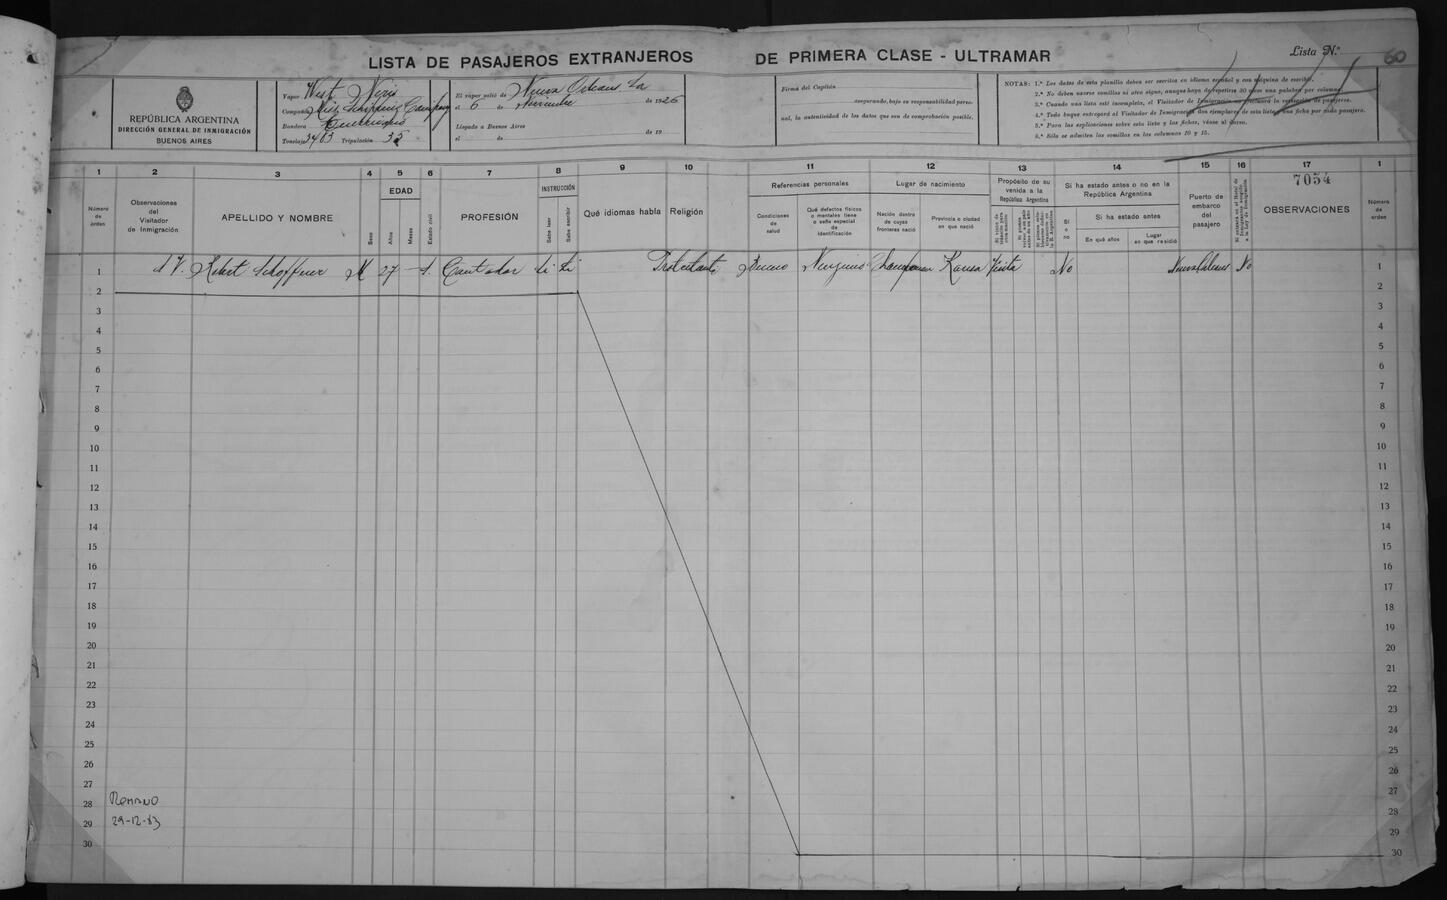 LISTA DE PASAJEROS EXTRANJEROS DE PRIMERA CLASE - ULTRAMAR
Lista N.º 60
REPÚBLICA ARGENTINA
DIRECCIÓN GENERAL DE INMIGRACIÓN
BUENOS AIRES
Vapor West Neris
Compañía Miss Shipping Company
Bandera Americano
Tonelaje 3403 Tripulación 35
El vapor salió de Nueva Orleans La
el 6 de Noviembre de 1926
Llegado a Buenos Aires
el de de 19
Firma del Capitán
asegurando, bajo su responsabilidad perso-
nal, la autenticidad de los datos que son de comprobación posible.
NOTAS: 1.ª Los datos de esta planilla deben ser escritos en idioma español y con máquina de escribir.
2.ª No deben usarse comillas ni otro signo, aunque haya de repetirse 30 veces una palabra por columna.
3.ª Cuando una lista esté incompleta, el Visitador de Inmigración rechazará la recepción de pasajeros.
4.ª Todo buque entregará al Visitador de Inmigración dos ejemplares de esta lista y una ficha por cada pasajero.
5.ª Para las explicaciones sobre esta lista y las fichas, véase al dorso.
6.ª Sólo se admiten las comillas en las columnas 10 y 15.
1 2 3 4 5 6 7 8 9 10 11 12 13 14 15 16 17 1
7054
Número de orden
Observaciones del Visitador de Inmigración
APELLIDO Y NOMBRE
Sexo
EDAD
Años
Meses
Estado civil
PROFESIÓN
INSTRUCCIÓN
Sabe leer
Sabe escribir
Qué idiomas habla
Religión
Referencias personales
Condiciones de salud
Qué defectos físicos o mentales tiene o seña especial de identificación
Lugar de nacimiento
Nación dentro de cuyas fronteras nació
Provincia o ciudad en que nació
Propósito de su venida a la República Argentina
Si ha estado antes o no en la República Argentina
Sí o no
Si ha estado antes
En qué años
Lugar en que residió
Puerto de embarco del pasajero
OBSERVACIONES
Número de orden
1 Schoffner M 27 - S. Contador Si Si Protestante Bueno Ninguno Kansa Visita No No 1
2 2
3 3
4 4
5 5
6 6
7 7
8 8
9 9
10 10
11 11
12 12
13 13
14 14
15 15
16 16
17 17
18 18
19 19
20 20
21 21
22 22
23 23
24 24
25 25
26 26
27 27
28 ROMANO 28
29 29-12-83 29
30 30